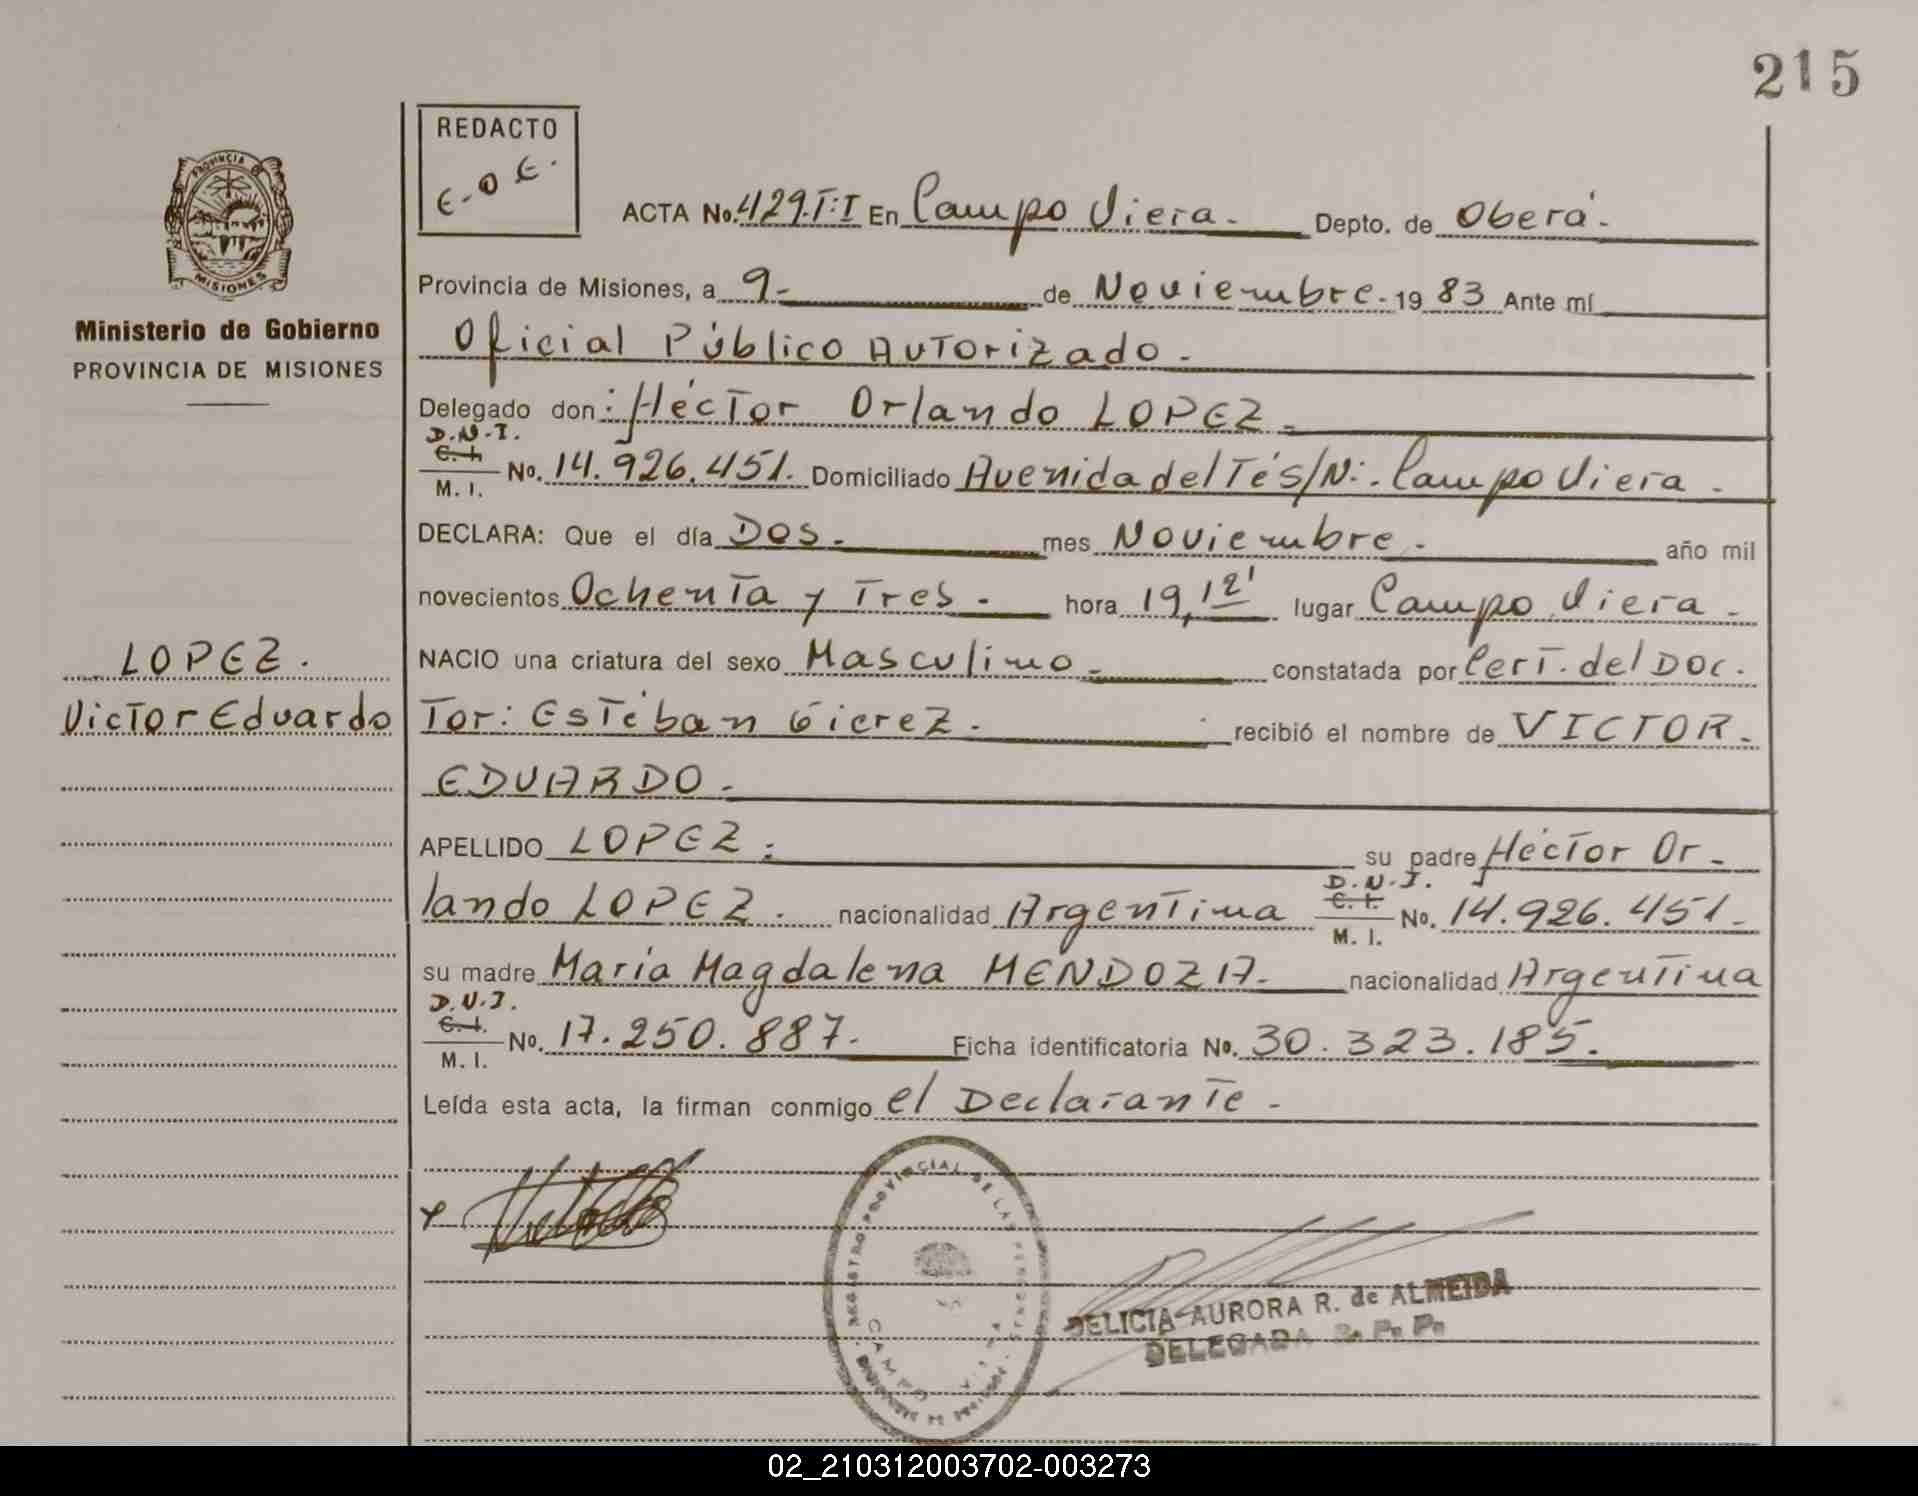 215
REDACTO
E.O.E.
PROVINCIA
MISIONES
Ministerio de Gobierno
PROVINCIA DE MISIONES
ACTA No. 429.T:I En Campo Viera.- Depto. de Oberá.-
Provincia de Misiones, a 9.- de Noviembre.- 19 83 Ante mí
Oficial Público Autorizado.-
Delegado don: Héctor Orlando LOPEZ.-
D.N.I.
C. I.
M. I. No. 14.926.451. Domiciliado Avenida del Té s/N:. Campo Viera.-
DECLARA: Que el día Dos.- mes Noviembre.- año mil
novecientos Ochenta y Tres.- hora 19,12' lugar Campo Viera.-
NACIO una criatura del sexo Masculino.- constatada por Cert. del Doc.
tor: Estéban Gierez.- recibió el nombre de VICTOR.-
EDUARDO.-
LOPEZ.
Victor Eduardo
APELLIDO LOPEZ.- su padre Héctor Or-
lando LOPEZ. nacionalidad Argentina D.N.I. C. I. M. I. No. 14.926.451.-
su madre María Magdalena MENDOZA.- nacionalidad Argentina
D.N.I.
C. I.
M. I. No. 17.250.887.- Ficha identificatoria No. 30.323.185.-
Leída esta acta, la firman conmigo el Declarante.-
REGISTRO PROVINCIAL DE LAS PERSONAS
CAMPO
DELICIA AURORA R. de ALMEIDA
DELEGADA R. P. P.
02_210312003702-003273